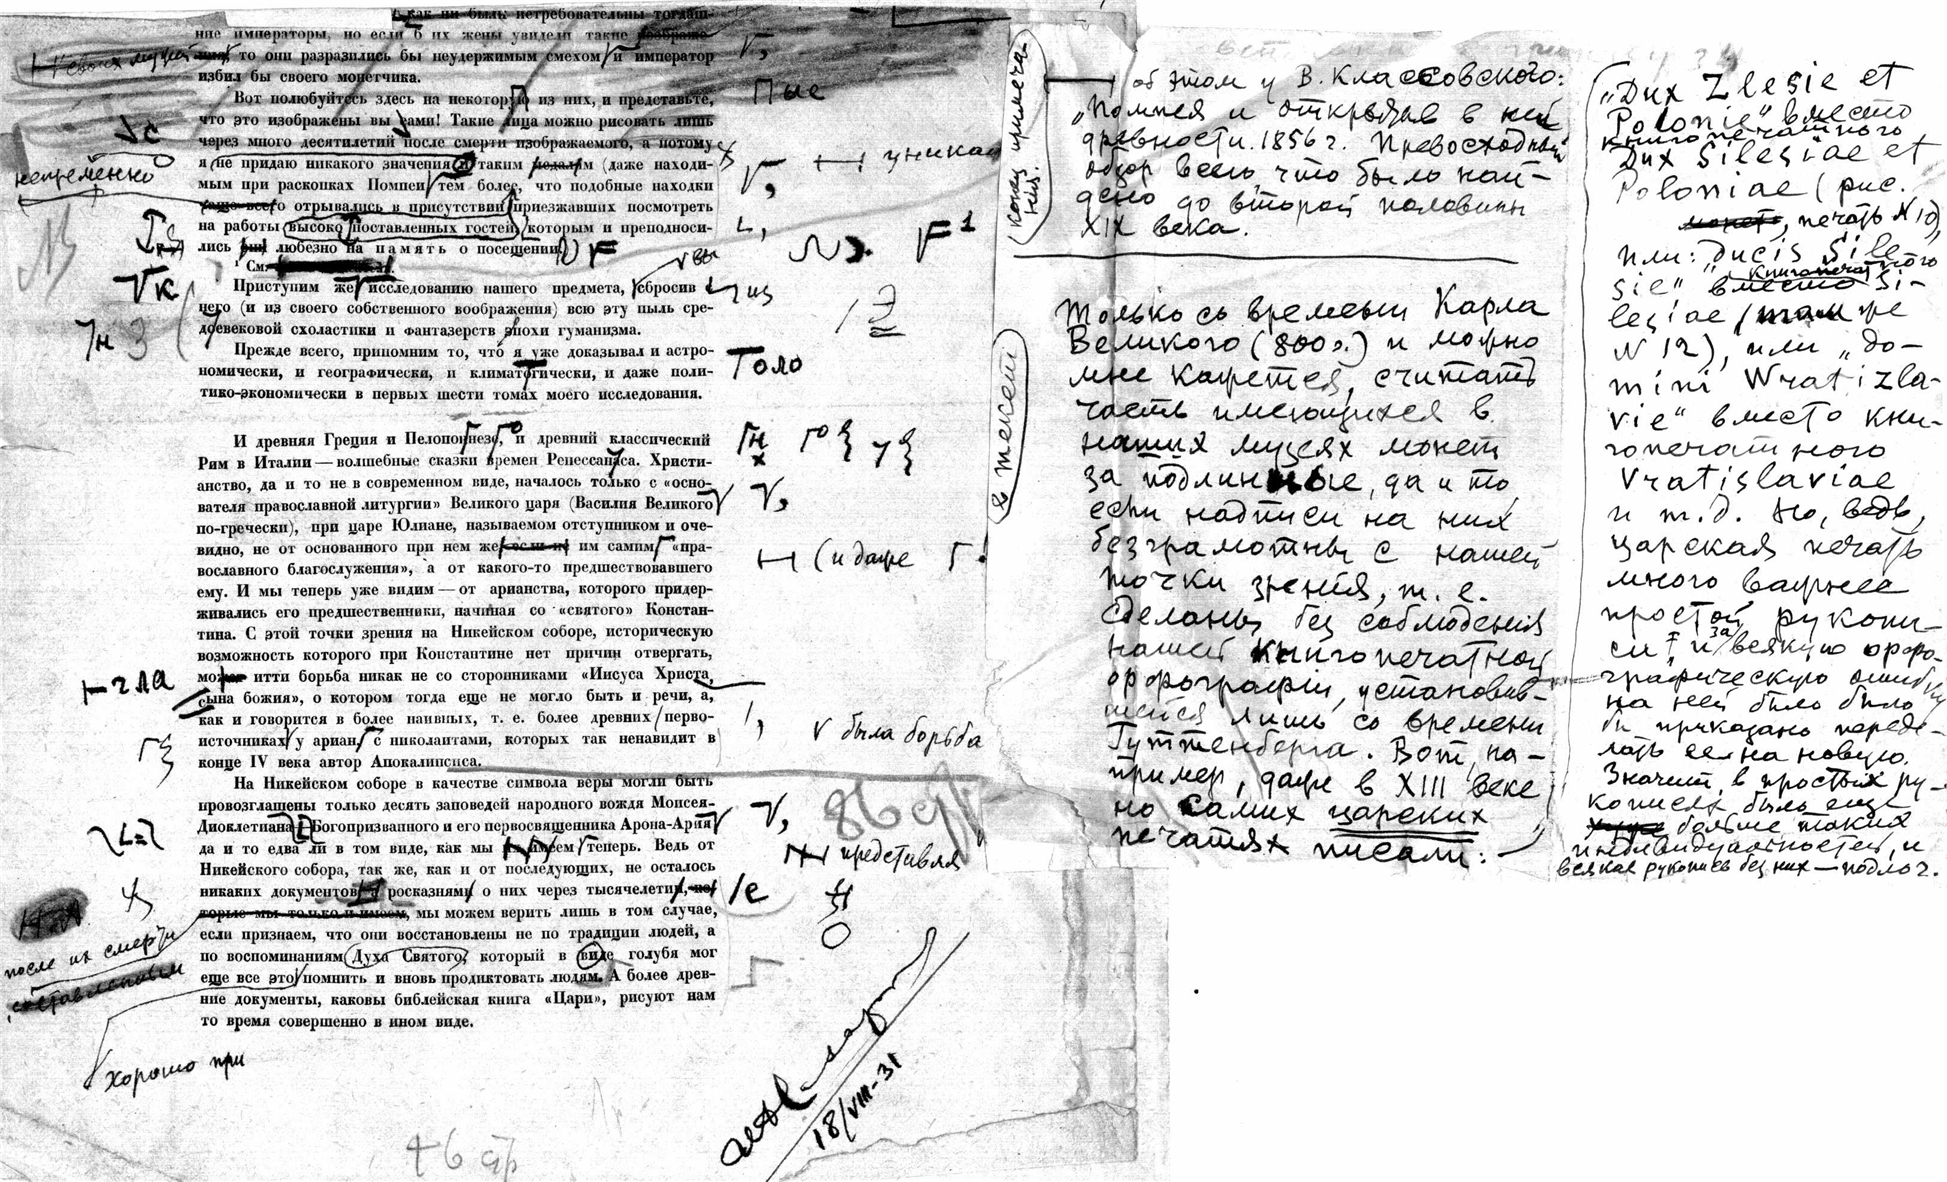 как ни были нетребовательны тогдаш-
ние императоры, но если б их жены увидели такие изображе-
ния, то они разразились бы неудержимым смехом и император
избил бы своего монетчика.
Вот полюбуйтесь здесь на некоторую из них, и представьте,
что это изображены вы сами! Такие лица можно рисовать лишь
через много десятилетий после смерти изображаемого, а потому
я не придаю никакого значения и таким медалям (даже находи-
мым при раскопках Помпеи тем более, что подобные находки
чаще всего отрывались в присутствии приезжавших посмотреть
на работы высоко поставленных гостей, которым и преподноси-
лись они любезно на память о посещении.
¹ См.
Приступим же исследованию нашего предмета, сбросив с
него (и из своего собственного воображения) всю эту пыль сре-
довековой схоластики и фантазерств эпохи гуманизма.
Прежде всего, припомним то, что я уже доказывал и астро-
номически, и географически, и климатогически, и даже поли-
тико-экономически в первых шести томах моего исследования.
И древняя Греция и Пелопоннезе, и древний классический
Рим в Италии — волшебные сказки времен Ренессанаса. Христи-
анство, да и то не в современном виде, началось только с «осно-
вателя православной литургии» Великого царя (Василия Великого
по-гречески), при царе Юлиане, называемом отступником и оче-
видно, не от основанного при нем же если не им самим «пра-
вославного благослужения», а от какого-то предшествовавшего
ему. И мы теперь уже видим — от арианства, которого придер-
живались его предшественники, начиная со «святого» Констан-
тина. С этой точки зрения на Никейском соборе, историческую
возможность которого при Константине нет причин отвергать,
может итти борьба никак не со сторонниками «Иисуса Христа,
сына божия», о котором тогда еще не могло быть и речи, а,
как и говорится в более наивных, т. е. более древних перво-
источниках у ариан с николаитами, которых так ненавидит в
конце IV века автор Апокалипсиса.
На Никейском соборе в качестве символа веры могли быть
провозглашены только десять заповедей народного вождя Моисея-
Диоклетиана Богопризванного и его первосвященника Арона-Ария
да и то едва ли в том виде, как мы их имеем теперь. Ведь от
Никейского собора, так же, как и от последующих, не осталось
никаких документов, а росказням о них через тысячелетия, ко-
торые мы только и имеем, мы можем верить лишь в том случае,
если признаем, что они восстановлены не по традиции людей, а
по воспоминаниям Духа Святого, который в виде голубя мог
еще все это помнить и вновь продиктовать людям. А более древ-
ние документы, каковы библейская книга «Цари», рисуют нам
то время совершенно в ином виде.
непременно
с
к
н
З
гла
после их смерти
составленным
Хорошо при
Пые
уникам
вы
из
Э
Толо
н
(и даже
была борьба
представля
е
о
86
46
18/VIII-31
конец примеча-
ния.
в текст
об этом у В. Классовского:
„Помпея и открытая в ней
древности. 1856 г. Превосходный
обзор всего что было най-
дено до второй половины
XIX века.
Только со времени Карла
Великого (800 г.) и можно
мне кажется, считать
часть имеющихся в
наших музеях монет
за подлинные, да и то
если надписи на них
безграмотны с нашей
точки зрения, т. е.
сделаны без соблюдения
нашей книгопечатной
орфографии, установив-
шейся лишь со времени
Гуттенберга. Вот, на-
пример, даже в XIII веке
но самих царских
печатях писали:
„Dux Zlesie et
Polonie" вместо
книгопечатного
Dux Silesiae et
Poloniae (рис.
монет, печать N 10),
или: Ducis Sile-
sie" вместо книгопечатного Si-
lesiae (там же
N 12), или „do-
mini Wratizla-
vie" вместо кни-
гопечатного
Vratislaviae
и т. д. Но, ведь,
царская печать
много важнее
простой рукопи-
си и за всякую орфо-
графическую ошибку
на ней было было
бы приказано переде-
лать ее на новую.
Значит, в простых ру-
кописях было еще
больше таких
индивидуальностей, и
всякая рукопись без них — подлог.